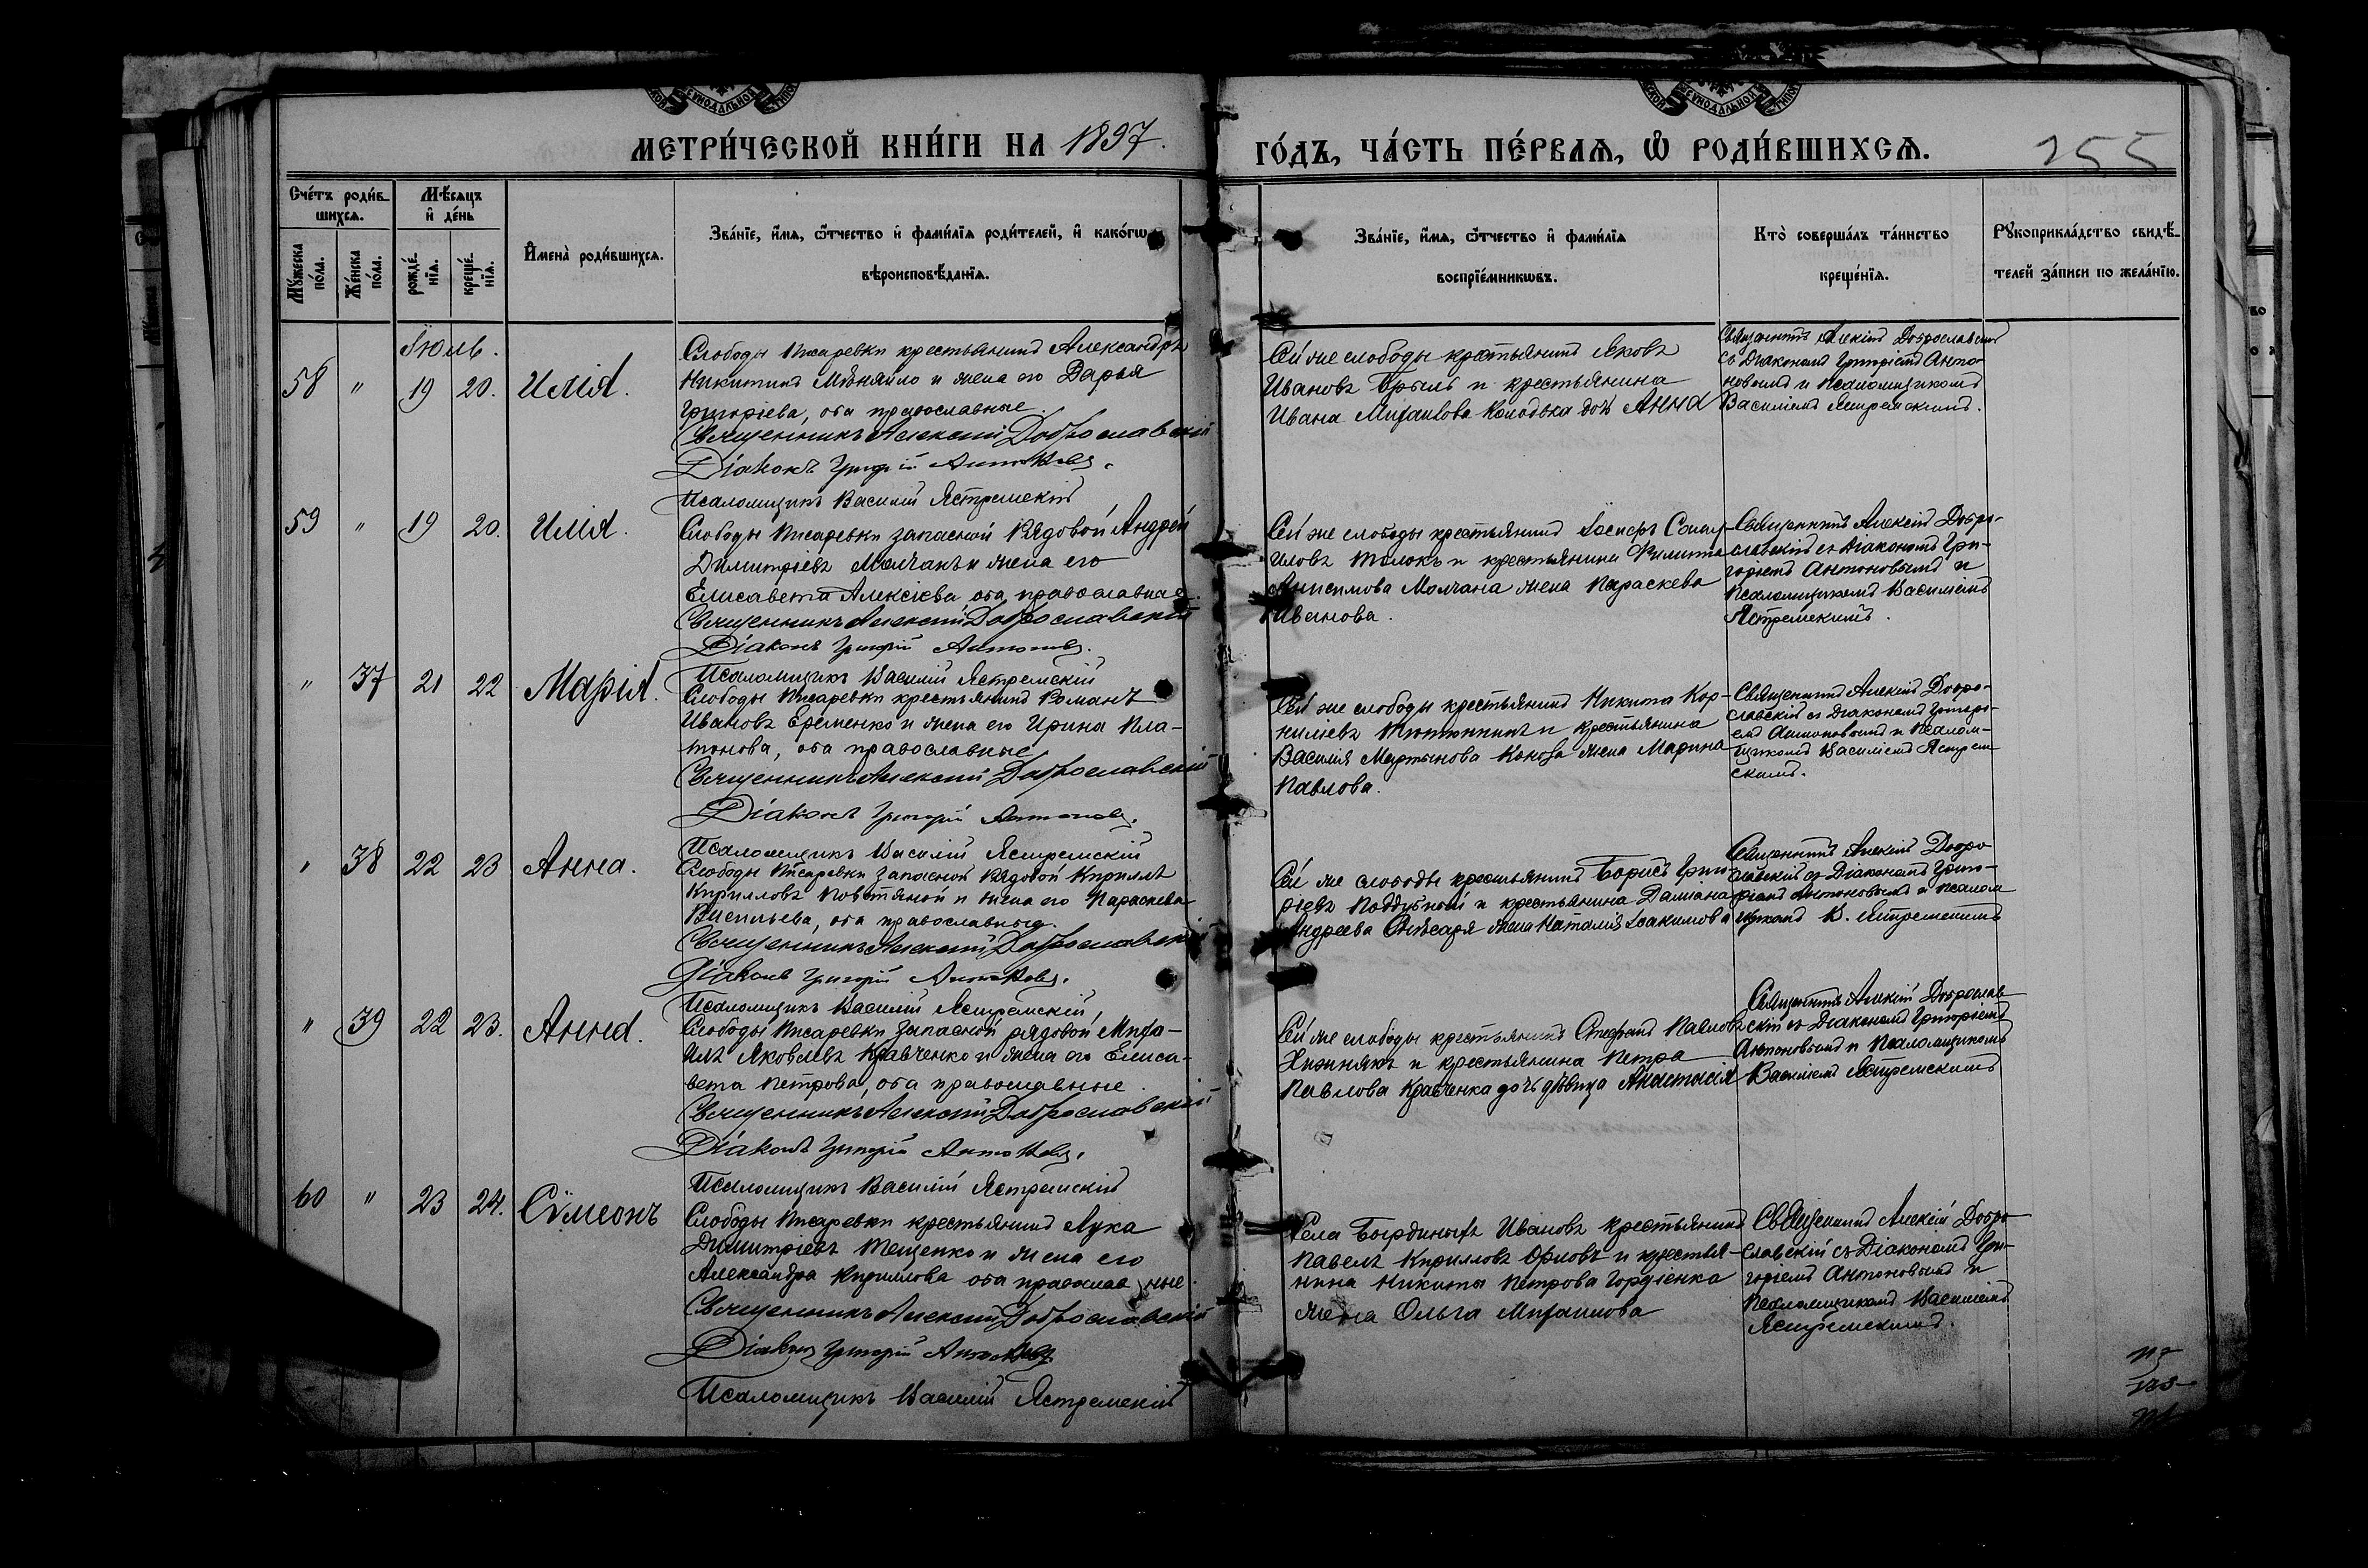 МЕТРИ́ЧЕСКОЙ КНИ́ГИ НА 1897.
ГО́ДЪ, ЧА́СТЬ ПЕ́РВАѦ, Ѡ҆ РОДИ́ВШИХСѦ.
255
Сче́тъ роди́в-
шихсѧ.
Мѣ́сѧцъ
и҆ де́нь
Мꙋ́жеска
по́ла.
Же́нска
по́ла.
рожде́-
нїѧ.
креще́-
нїѧ.
И҆мена̀ роди́вшихсѧ.
Зва́нїе, и҆́мѧ, ѻ҆́тчество и҆ фами́лїѧ роди́телей, и҆ како́гѡ
вѣроисповѣ́данїѧ.
Зва́нїе, и҆́мѧ, ѻ҆́тчество и҆ фами́лїѧ
воспрїе́мникѡвъ.
Кто̀ соверша́лъ та́инство
креще́нїѧ.
Рꙋкоприкла́дство свидѣ́-
телей за́писи по жела́нїю.
Іюль.
58 " 19 20. Илія.
Слободы Писаревки крестьянинъ Александръ
Никитинъ Мѣняйло и жена его Дарья
Григоріева, оба православные.
Священникъ Алексій Доброславскій
Діаконъ Григорій Антоновъ.
Псаломщикъ Василій Ястремскій
Сей же слободы крестьянинъ Яковъ
Ивановъ Брыль и крестьянина
Ивана Михаилова Колодька дочь Анна
Священникъ Алексій Доброславскій
съ Діакономъ Григоріемъ Анто-
новымъ и Псаломщикомъ
Василіемъ Ястремскимъ.
59 " 19 20. Илія.
Слободы Писаревки запасной Рядовой Андрей
Димитріевъ Молчанъ и жена его
Елисавета Алексіева оба православные.
Священникъ Алексій Доброславскій
Діаконъ Григорій Антоновъ.
Псаломщикъ Василій Ястремскій
Сей же слободы крестьянинъ Іосифъ
иловъ Толокъ и крестьянина Филиппа
Анисимова Молчана жена Параскева
Иванова.
Священникъ Алексій Добро-
славскій съ Діакономъ Гри-
горіемъ Антоновымъ и
Псаломщикомъ Василіемъ
Ястремскимъ.
" 37 21 22 Марія.
Слободы Писаревки крестьянинъ Романъ
Ивановъ Еременко и жена его Ирина Пла-
тонова, оба православные
Священникъ Алексій Доброславскій
Діаконъ Григорій Антоновъ.
Псаломщикъ Василій Ястремскій
Сей же слободы крестьянинъ Никита Кор-
ниліевъ Тютюнникъ и крестьянина
Василія Мартынова жена Марина
Павлова.
Священникъ Алексій Добро-
славскій съ Діакономъ Григорі-
емъ Антоновымъ и Псалом-
щикомъ Василіемъ Ястрем
скимъ.
" 38 22 23 Анна.
Слободы Писаревки запасной Рядовой Кириллъ
Кирилловъ Повстяной и жена его Параскева
Васильева, оба православные.
Священникъ Алексій Доброславскій
Діаконъ Григорій Антоновъ.
Псаломщикъ Василій Ястремскій
Сей же слободы крестьянинъ Борисъ Григо
ріевъ Поддубный и крестьянина Даміана
Андреева Слѣсаря жена Наталія Іоакимова
Священникъ Алексій Добро
славскій съ Діакономъ Григо-
ріемъ Антоновымъ и Псалом
щикомъ В. Ястремскимъ
" 39 22 23. Анна.
Слободы Писаревки запасной рядовой Миха-
илъ Яковлевъ Кравченко и жена его Елиса-
вета Петрова, оба православные.
Священникъ Алексій Доброславскій
Діаконъ Григорій Антоновъ.
Псаломщикъ Василій Ястремскій
Сей же слободы крестьянинъ Стефанъ Павловъ
Хижнякъ и крестьянина Петра
Павлова Кравченка дочь дѣвица Анастасія
Священникъ Алексій Доброслав
скій съ Діакономъ Григоріемъ
Антоновымъ и Псаломщикомъ
Василіемъ Ястремскимъ
60 " 23 24. Сѵмеонъ
Слободы Писаревки крестьянинъ Лука
Димитріевъ Тещенко и жена его
Александра Кириллова оба православные.
Священникъ Алексій Доброславскій
Діаконъ Григорій Антоновъ
Псаломщикъ Василій Ястремскій
Села Ивановъ крестьянинъ
Павелъ Кирилловъ Орловъ и крестья-
нина Никиты Петрова Гордіенко
жена Ольга Михаилова
Священникъ Алексій Добро
славскій съ Діакономъ Гри-
горіемъ Антоновымъ и
Псаломщикомъ Василіемъ
Ястремскимъ.